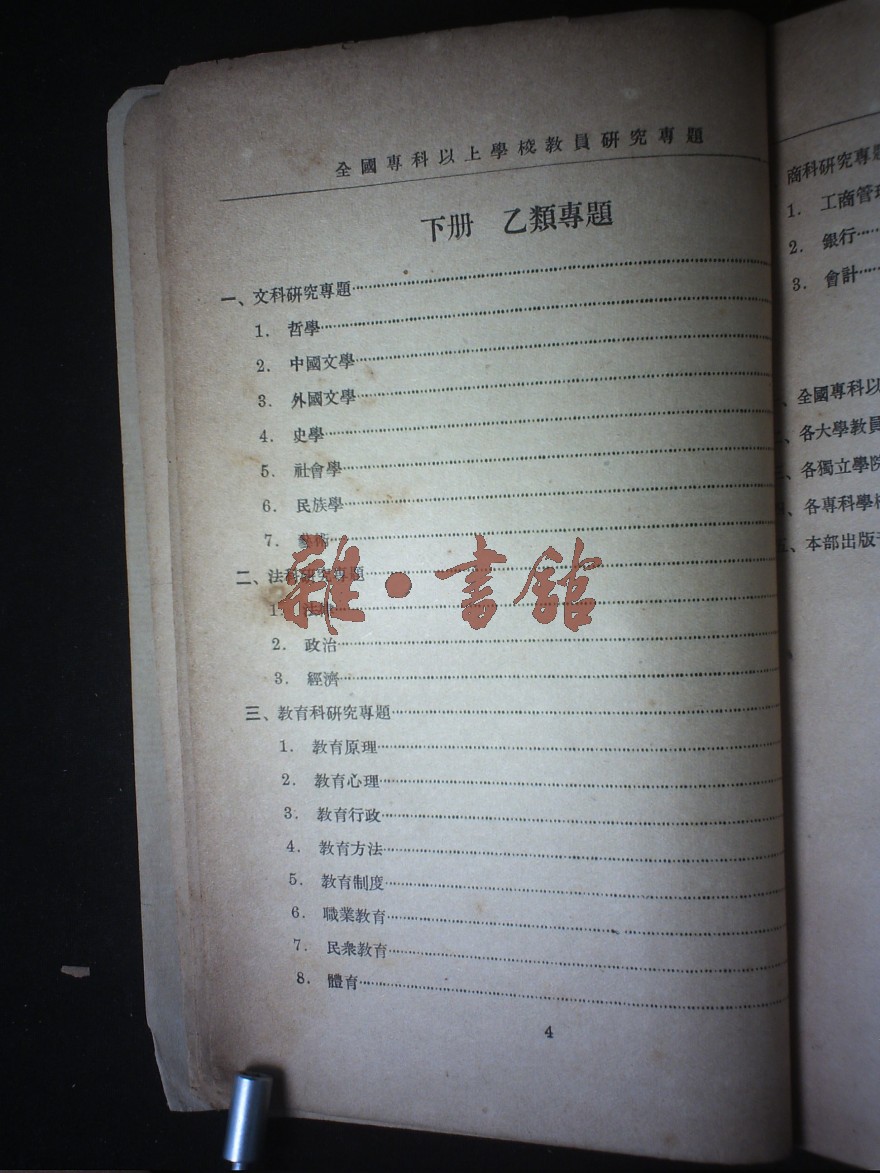 全國專科以上學校教員研究專題
下册 乙類專題
一、文科研究專題
1. 哲學
2. 中國文學
3. 外國文學
4. 史學
5. 社會學
6. 民族學
7. 藝術
二、法科研究專題
1. 法律
2. 政治
3. 經濟
三、教育科研究專題
1. 教育原理
2. 教育心理
3. 教育行政
4. 教育方法
5. 教育制度
6. 職業教育
7. 民衆教育
8. 體育
4
雜·書館
商科研究專題
1. 工商管理
2. 銀行
3. 會計
、全國專科以
、各大學教員
、各獨立學院
、各專科學校
、本部出版